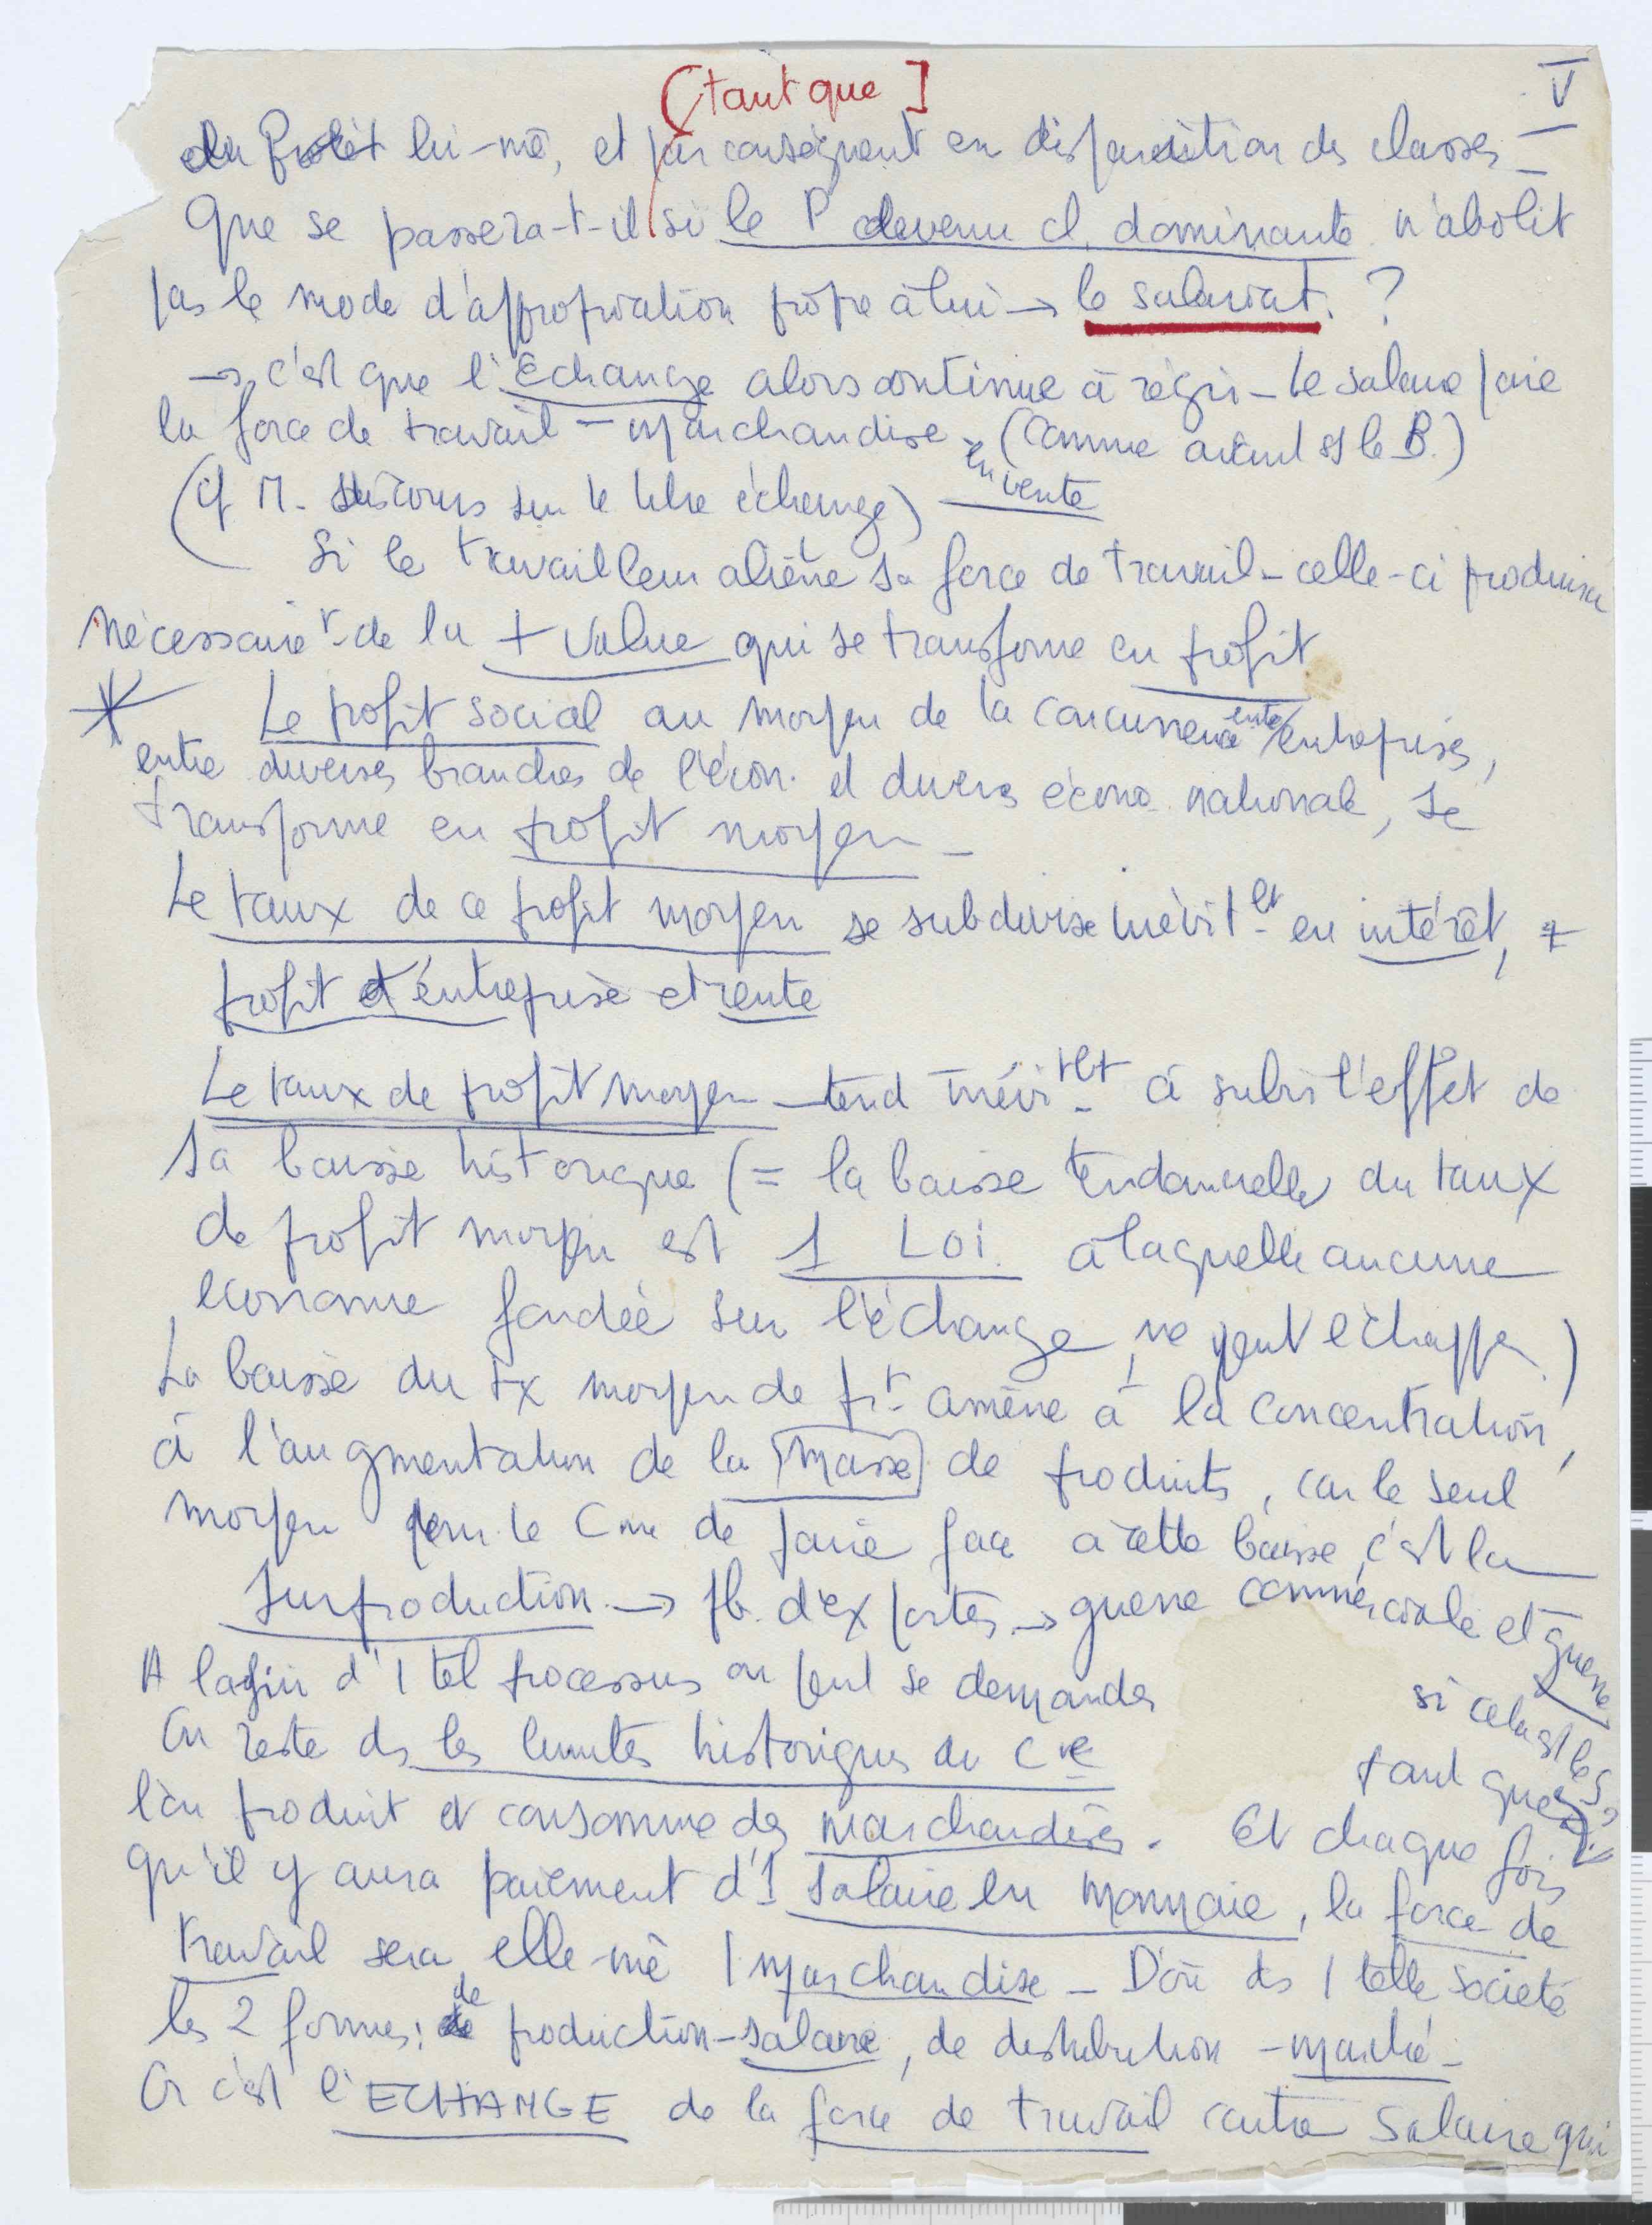 V
(tant que ]
du Prolét lui-mê, et par conséquent en disparition des classes –
Que se passera-t-il si le P devenu cl. dominante n'abolit
pas le mode d'appropriation propre à lui → le salariat. ?
→ c'est que l'Echange alors continue à régir – Le salaire paie
la force de travail – marchandise (comme avant ss le B.)
en vente
(cf M. discours sur le libre échange)
Si le travailleur aliène sa force de travail – celle-ci produira
nécessairet de la + value qui se transforme en profit
* Le profit social au moyen de la concurrence entre entreprises,
entre diverses branches de l'écon. et divers écono. nationale, se
transforme en profit moyen –
Le taux de ce profit moyen se subdivise inévitet en intérêt, +
profit d'entreprise et rente
Le taux de profit moyen – tend inévitblt à subir l'effet de
sa baisse historique (= la baisse tendancielle du taux
de profit moyen est 1 Loi à laquelle aucune
économie fondée sur l'échange ne peut échapper)
La baisse du tx moyen de pr.t amène à la concentration,
à l'augmentation de la masse de produits, car le seul
moyen pour le Cme de faire face à cette baisse, c'est la
surproduction → pb. d'exporter → guerre commerciale et guerre
A la fin d'1 tel processus on peut se demander si cela est le S?
On reste ds les limites historiques du Cme tant que
l'on produit et consomme des marchandises. Et chaque fois
qu'il y aura paiement d'1 salaire en monnaie, la force de
travail sera elle-mê 1 marchandise – D'où ds 1 telle société
les 2 formes : de production – salaire, de distribution – marché –
Or c'est l'ECHANGE de la force de travail contre salaire qui